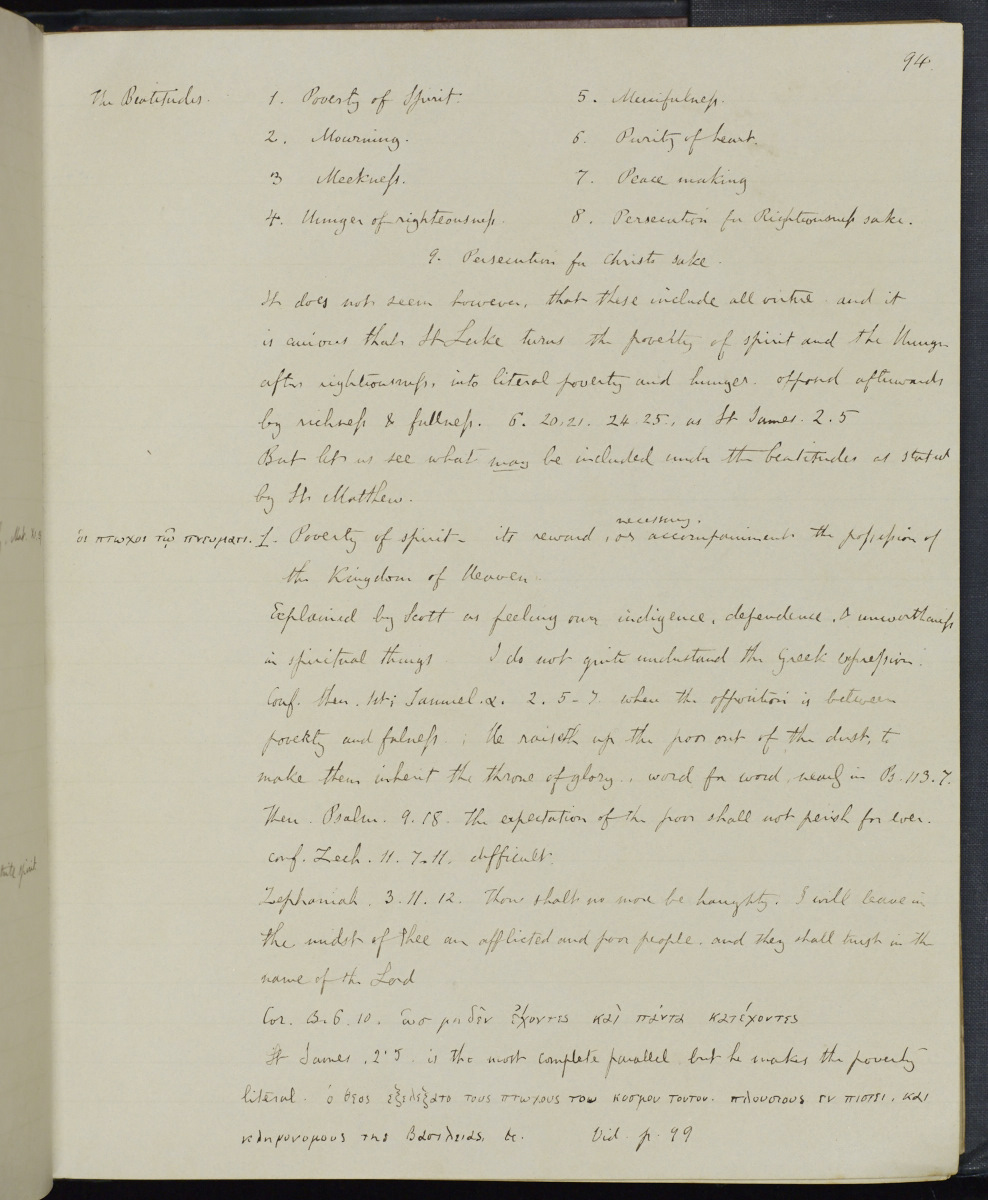 94.
The Beatitudes.
1. Poverty of Spirit.
5. Mercifulness.
2. Mourning.
6. Purity of heart.
3 Meekness.
7. Peace making
4. Hunger of righteousness.
8. Persecution for Righteousness sake.
9. Persecution for Christs sake.
It does not seem however, that these include all virtue. and it
is curious that St Luke turns the poverty of spirit and the Hunger
after righteousness, into literal poverty and hunger. opposed afterwards
by richness & fullness. 6. 20.21. 24.25., as St James. 2.5
But let us see what may be included under the beatitudes as stated
by St Matthew.
ὁι πτωχοι τῷ πνευματι. 1. Poverty of spirit - its reward, or necessary. accompaniment. the possession of
the Kingdom of Heaven.
Explained by Scott as feeling our indigence, dependence, & unworthiness
in spiritual things I do not quite understand the Greek expression.
Conf. then. 1st; Samuel. 2. 5-7 where the opposition is between
poverty and fulness.; He raiseth up the poor out of the dust, to
make them inherit the throne of glory., word for word, nearly in Ps. 113.7.
Then. Psalm. 9.18. the expectation of the poor shall not perish for ever.
conf. Zech. 11. 7-11. difficult.
Zephaniah. 3.11.12. Thou shalt no more be haughty. I will leave in
the midst of thee an afflicted and poor people. and they shall trust in the
name of the Lord
Cor. B. 6.10. ὡσ μηδὲν ἔχοντες καὶ πάντα κατέχοντες
St James. 2.5. is the most complete parallel but he makes the poverty
literal. ὁ θεος εξελεξατο τους πτωχους του κοσμου τουτου. πλουσιους εν πιστει. και
κληρονομους της βασιλειας, &c. Vid. p. 99